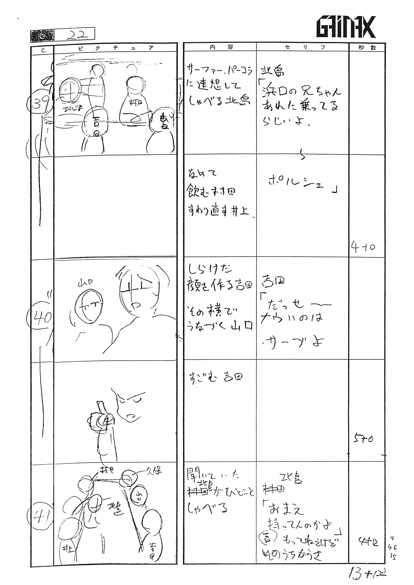 22
GAINAX
C.
ピクチュア
内容
セリフ
秒数
39
サーファー、パーコラ
に連想して
しゃべる北島
北島
「浜口の兄ちゃん
あれた乗ってる
らしいよ.
村田
吉田
飲む村田
すわり直す井上.
ポルシェ」
4+0
40
山口
しらけた
顔を作る吉田
その横で
うなづく山口
吉田
「だっせ〜
ナウいのは
サーブよ
すごむ吉田
5+0
41
久保
北島
井上
吉田
聞いていた
北島がひとこと
しゃべる
北島
「おまえ
持ってんのかよ」
吉 もってねえけど
4+12
13+12